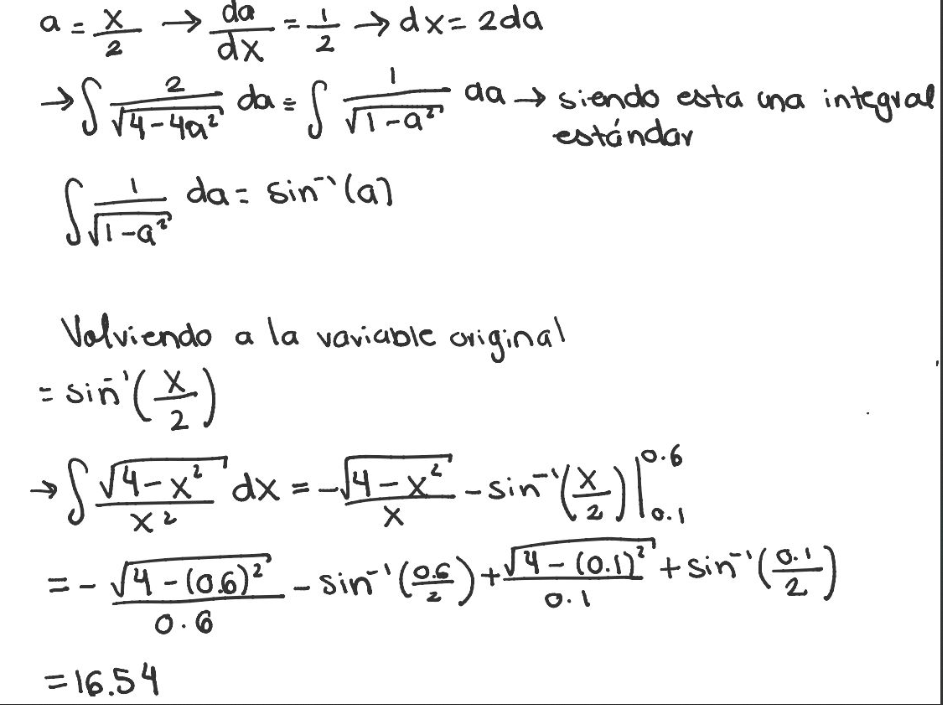 a = x/2 → da/dx = 1/2 → dx = 2da
→ ∫ 2/√(4-4a²) da = ∫ 1/√(1-a²) da → siendo esta una integral
estándar
∫ 1/√(1-a²) da = sin⁻¹(a)
Volviendo a la variable original
= sin⁻¹(x/2)
→ ∫ √(4-x²)/x² dx = -√(4-x²)/x - sin⁻¹(x/2) |₀.₁^0.6
= - √(4-(0.6)²)/0.6 - sin⁻¹(0.6/2) + √(4-(0.1)²)/0.1 + sin⁻¹(0.1/2)
= 16.54